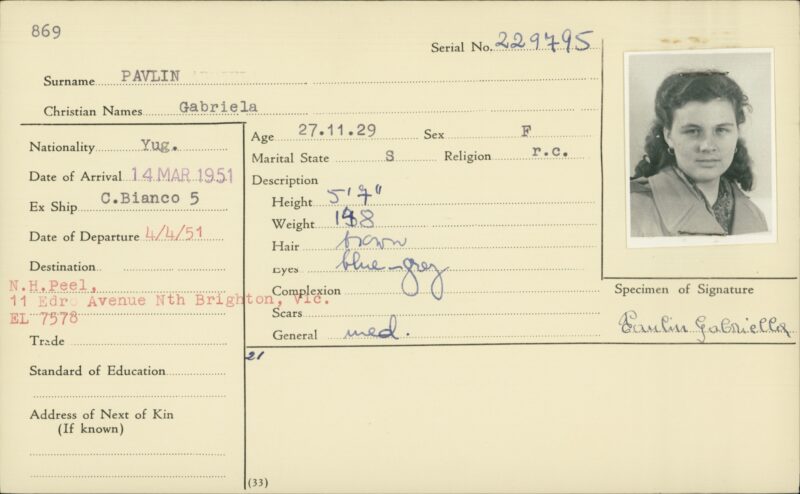 869
Serial No. 229795
Surname PAVLIN
Christian Names Gabriela
Nationality Yug.
Date of Arrival 14 MAR 1951
Ex Ship C.Bianco 5
Date of Departure 4/4/51
Destination
N.H.Peel,
11 Edro Avenue Nth Brighton, Vic.
EL 7578
Trade
Standard of Education
Address of Next of Kin
(If known)
Age 27.11.29 Sex F
Marital State S Religion r.c.
Description
Height 5'7"
Weight 148
Hair brown
Eyes blue-grey
Complexion
Scars
General med.
21
(33)
Specimen of Signature
Pavlin Gabriella